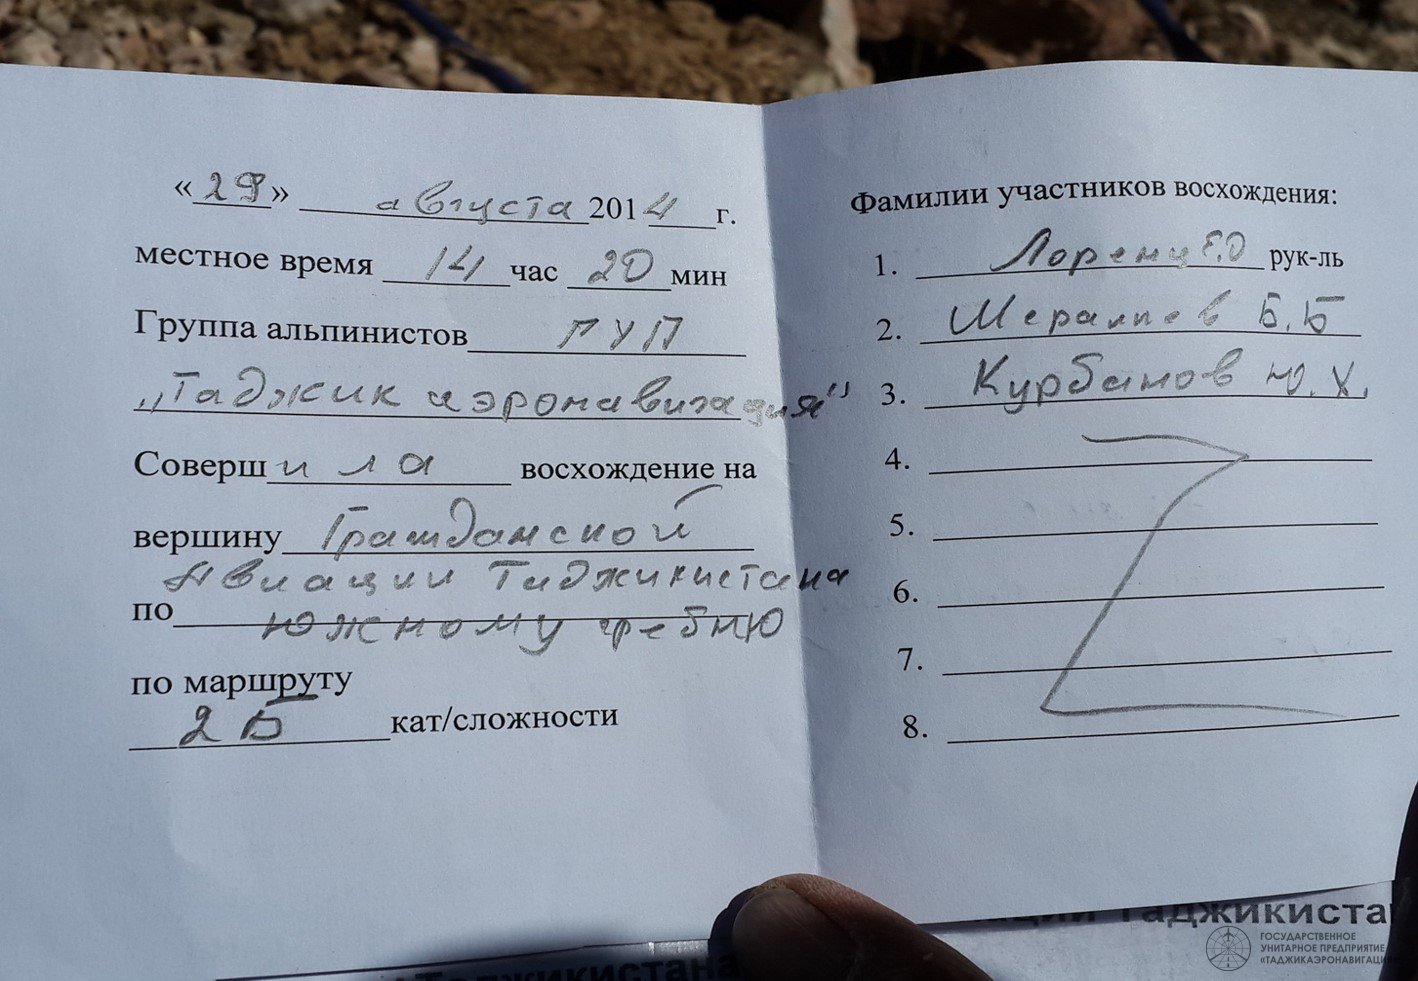 «29» августа 2014 г.
местное время 14 час 20 мин
Группа альпинистов ГУП
„Таджикаэронавигация"
Совершила восхождение на
вершину Гражданской
Авиации Таджикистана
по южному гребню
по маршруту
2Б кат/сложности
Фамилии участников восхождения:
1. Лоренц Е.О рук-ль
2. Шералиев Б.Б
3. Курбанов Ю.Х.
4.
5.
6.
7.
8.
ации Таджикиста
Таджикистана
ГОСУДАРСТВЕННОЕ
УНИТАРНОЕ ПРЕДПРИЯТИЕ
«ТАДЖИКАЭРОНАВИГАЦИЯ»